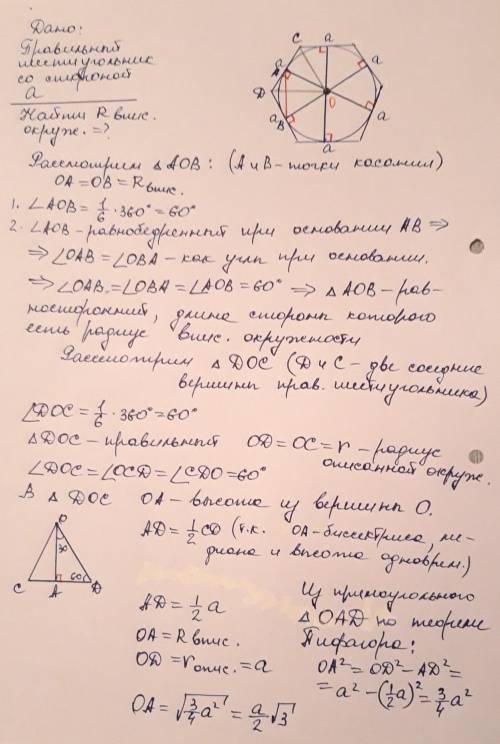 Дано:
Правильный
шестиугольник
со стороной
a
Найти R впис.
окруж. = ?
C a
A a a
D O
a B a
a
Рассмотрим △AOB: (A и B - точки касания)
OA = OB = R впис.
1. ∠AOB = 1/6 · 360° = 60°
2. ∠AOB - равнобедренный при основании AB ⇒
⇒ ∠OAB = ∠OBA - как углы при основании.
⇒ ∠OAB = ∠OBA = ∠AOB = 60° ⇒ △AOB - рав-
носторонний, длина стороны которого
есть радиус впис. окружности
Рассмотрим △DOC (D и C - две соседние
вершины прав. шестиугольника)
∠DOC = 1/6 · 360° = 60°
△DOC - правильный OD = OC = r - радиус
описанной окруж.
∠DOC = ∠OCD = ∠CDO = 60°
В △DOC OA - высота из вершины O.
AD = 1/2 CD (т.к. OA - биссектриса, ме-
диана и высота одноврем.)
O
30
60°
C A D
AD = 1/2 a
OA = R впис.
OD = r опис. = a
OA = √(3/4 a²) = a/2 √3
Из прямоугольного
△OAD по теореме
Пифагора:
OA² = OD² - AD² =
= a² - (1/2 a)² = 3/4 a²